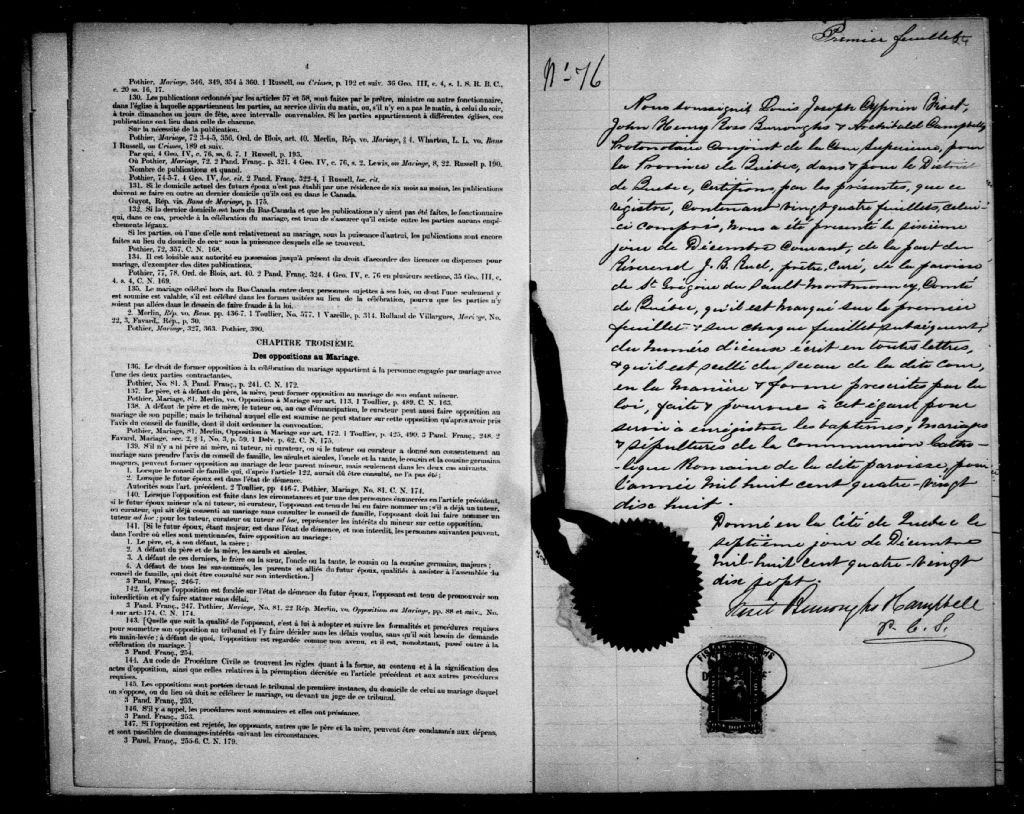 4
Pothier, Mariage, 346, 349, 354 à 360. 1 Russell, on Crimes, p. 192 et suiv. 36 Geo. III, c. 4, s. 1. S. R. B. C.,
c. 20 ss. 16, 17.
130. Les publications ordonnés par les articles 57 et 58, sont faites par le prêtre, ministre ou autre fonctionnaire,
dans l'église à laquelle appartiennent les parties, au service divin du matin, ou, s'il n'y en a pas le matin, à celui du soir,
à trois dimanches ou jours de fête, avec intervalle convenables. Si les parties appartiennent à différentes églises, ces
publications ont lieu dans celle de chacune.
Sur la nécessité de la publication.
Pothier, Mariage, 72 3-4-5, 356, Ord. de Blois, art. 40. Merlin, Rép. vo. Mariage, § 4. Wharton, L. L. vo. Bans
1 Russell, on Crimes, 189 et suiv.
Par qui, 4 Geo. IV, c. 76, ss. 6, 7. 1 Russell, p. 195.
Où Pothier, Mariage, 72. 2 Pand. Franç. p. 321. 4 Geo. IV, c. 76, s. 2. Lewis, on Mariage, 8, 22. Russell p. 190.
Nombre de publications et quand.
Pothier, 74-5-7. 4 Geo. IV, loc. cit. 2 Pand. Franç. 322-4, 1 Russell, loc. cit.
131. Si le domicile actuel des futurs époux n'est pas établi par une résidence de six mois au moins, les publications
doivent se faire en outre au dernier domicile qu'ils ont eu dans le Canada.
Guyot, Rép. vis. Bans de Mariage, p. 175.
132. Si la dernier domicile est hors du Bas-Canada et que les publications n'y aient pas été faites, le fonctionnaire
qui, dans ce cas, procède à la célébration du mariage, est tenu de s'assurer qu'il existe entre les parties aucuns empê-
chements légaux.
Si les parties, ou l'une d'elle sont relativement au mariage, sous la puissance d'autrui, les publications sont encore
faites au lieu du domicile de ceux sous la puissance desquels elle se trouvent.
Pothier, 72, 357. C. N. 168.
134. Il est loisible aux autorité en possession jusqu'à présent du droit d'accorder des licences ou dispenses pour
mariage, d'exempter des dites publications.
Pothier, 77, 78, Ord. de Blois, art. 40. 2 Pand. Franç. 324. 4 Geo. IV, c. 76 en plusieurs sections, 35 Geo. III, c.
4, s. 4, C. N. 169.
135. Le mariage célébré hors du Bas-Canada entre deux personnes sujettes à ses lois, ou dont l'une seulement y
est soumise est valable, s'il est célébré dans les formes usitées au lieu de la célébration, pourvu que les parties n'y
soient pas allées dans le dessein de faire fraude à la loi.
2. Merlin, Rép. vo. Bans. pp. 436-7. 1 Toullier, No. 577. 1 Vazeille, p. 314. Rolland de Villargues, Mariage, No.
22, 3, Favard, Rép., p. 50.
Pothier, Mariage, 327, 363. Pothier, 390.
CHAPITRE TROISIÈME.
Des oppositions au Mariage.
136. Le droit de former opposition à la célébration du mariage appartient à la personne engagée par mariage avec
l'une des deux parties contractantes.
Pothier, No. 81. 3. Pand. Franç., p. 241. C. N. 172.
137. Le père, et à défaut du père, la mère, peut former opposition au mariage de son enfant mineur.
Pothier, Mariage, 81. Merlin, vo. Opposition à Mariage sur art. 113. 1 Toullier, p. 489. C. N. 163.
138. A défaut de père et de mère, le tuteur ou, au cas d'émancipation, le curateur peut aussi faire opposition au
mariage de son pupille; mais le tribunal auquel elle est soumise ne peut statuer sur cette opposition qu'après avoir pris
l'avis du conseil de famille, dont il doit ordonner la convocation.
Pothier, Mariage, 81. Merlin, Opposition à Mariage sur art. 172. 1 Toullier, p. 425, 490. 3 Pand. Franç., 248. 2
Favard, Mariage, sec. 2, § 1, No. 3, p. 59. 1 Delv. p. 62. C. N. 175.
139. S'il n'y a ni père ni mère, ni tuteur, ni curateur, ou si le tuteur ou curateur a donné son consentement au
mariage sans prendre l'avis du conseil de famille, les aïeuls et aïeules, l'oncle et la tante, le cousin et la cousine germains
mageurs, peuvent former opposition au mariage de leur parent mineur, mais seulement dans les deux cas suivants
1. Lorsque le conseil de famille qui, d'après l'article 122, aurait dû être consulté, ne l'a pas été;
2. Lorsque le futur époux est dans l'état de démence.
Autorités sous l'art. précédent. 2 Toullier, pp 446-7. Pothier, Mariage, No. 81. C. N. 174.
140. Lorsque l'opposition est faite dans les circonstances et par une des personnes énumérées en l'article précédent,
si le futur époux mineur n'a ni tuteur, ni curateur, l'opposant est tenu de lui en faire nommer un; s'il a déjà un tuteur,
ou curateur, qui ait déjà consenti au mariage sans consulter le conseil de famille, l'opposant doit lui faire nommer un
tuteur ad hoc; pour les tuteur, curateur ou tuteur ad hoc, représenter les intérêts du mineur sur cette opposition.
141. [Si le futur époux, étant majeur, est dans l'état de démence, et non interdit, les personnes suivantes peuvent,
dans l'ordre où elles sont mentionnées, faire opposition au mariage:
1. Le père, et, à son défaut, la mère;
2. A défaut du père et de la mère, les aïeuls et aïeules.
3. A défaut de ces derniers, le frère ou la sœur, l'oncle ou la tante, le cousin ou la cousine germains, majeurs;
4. A défaut de tous les sus-nommés, les parents et alliés du futur époux, qualifiés à assister à l'assemblée du
conseil de famille, qui doit être consulté sur son interdiction.]
3 Pand. Franç., 246-7.
142. Lorsque l'opposition est fondée sur l'état de démence du futur époux, l'opposant est tenu de promouvoir son
interdiction et d'y faire statuer sans délai.
3 Pand. Franç., 247. Pothier, Mariage, No. 81. 22 Rép. Merlin, vo. Opposition au Mariage, pp. 88 et suiv., No.
4 sur art: 174. C. N. 174.
143. [Quelque que soit la qualité de l'opposant, c'est à lui à adopter et suivre les formalités et procédures requises
pour soumettre son opposition au tribunal et l'y faire décider sous les délais voulus, sans qu'il soit besoin de demande
en main-levée; à défaut de quoi, l'opposition est regardée comme non avenu, et il est, nonobstant, passé outre à la
célébration du mariage.]
3 Pand. Franç., 254.
144. Au code de Procédure Civile se trouvent les règles quant à la forme, au contenu et à la signification des
actes d'opposition, ainsi que celles relatives à la péremption décrétée en l'article précédent et aux autres procédures
requises.
145. Les oppositions sont portées devant le tribunal de première instance, du domicile de celui au mariage duquel
on s'oppose, ou du lieu où doit se célébrer le mariage, ou devant un juge de ce tribunal.
3 Pand. Franç., 253.
146. S'il y a appel, les procédures sont sommaires et elles ont préséance.
3 Pand. Franç., 253.
147. Si l'opposition est rejetée, les opposants, autres que le père et la mère, peuvent être condamnés aux dépens,
et sont passibles de dommages-intérêts suivant les circonstances.
3 Pand. Franç., 255-6. C. N. 179.
Premier feuillet
No. 76
Nous soussignés, Louis Joseph Cyprien Fiset
John Henry Ross Burroughs & Archibald Campbell
Protonotaire Conjoint de la Cour Supérieure, pour
la Province de Québec, dans & pour le District
de Québec, Certifions par les présentes, que ce
registre, Contenant vingt quatre feuillets, celui-
ci compris, nous a été présenté le sixième
jour de Décembre Courant, de la part du
Révérend J. B. Ruel, prêtre, Curé, de la paroisse
de St. Grégoire du Sault Montmorency, Comté
de Québec, qu'il est marqué sur le premier
feuillet & sur chaque feuillet subséquent,
du Numéro d'iceux écrit en toutes lettres,
& qu'il est scellé du sceau de la dite Cour,
en la Manière & forme prescrites par la
loi, faite & pourvue à cet égard pour
servir à enregistrer les baptêmes, Mariages
& sépultures de la Communion Catho-
lique Romaine de la dite paroisse, pour
l'année Mil huit cent quatre-vingt
dix huit.
Donné en la Cité de Quebec le
septième jour de Décembre
Mil huit cent quatre-vingt
dix sept.
Fiset Burroughs & Campbell
P. C. S.